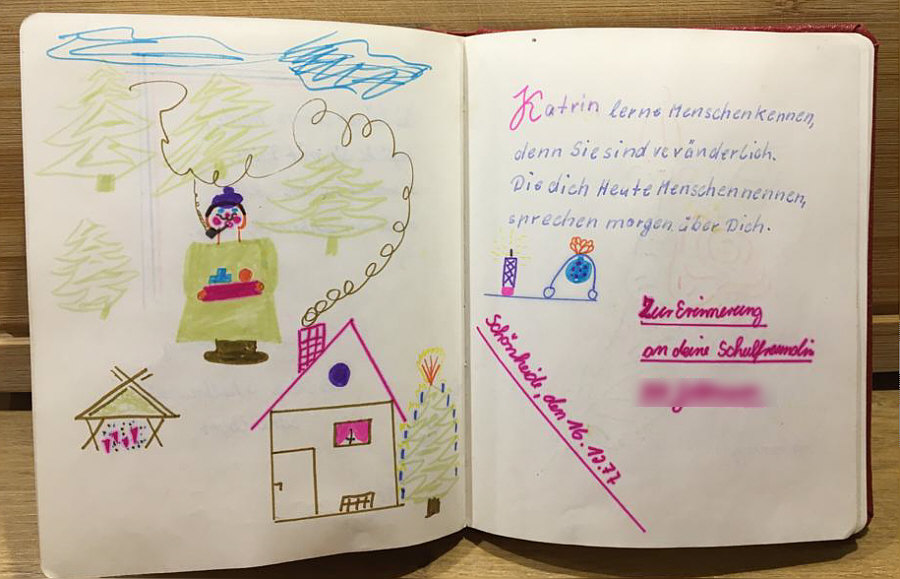 Katrin lerne Menschenkennen,
denn Sie sind veränderlich.
Die dich Heute Menschennennen,
sprechen morgen über Dich.
Zur Erinnerung
an deine Schulfreundin
Schönheide, den 16.12.77